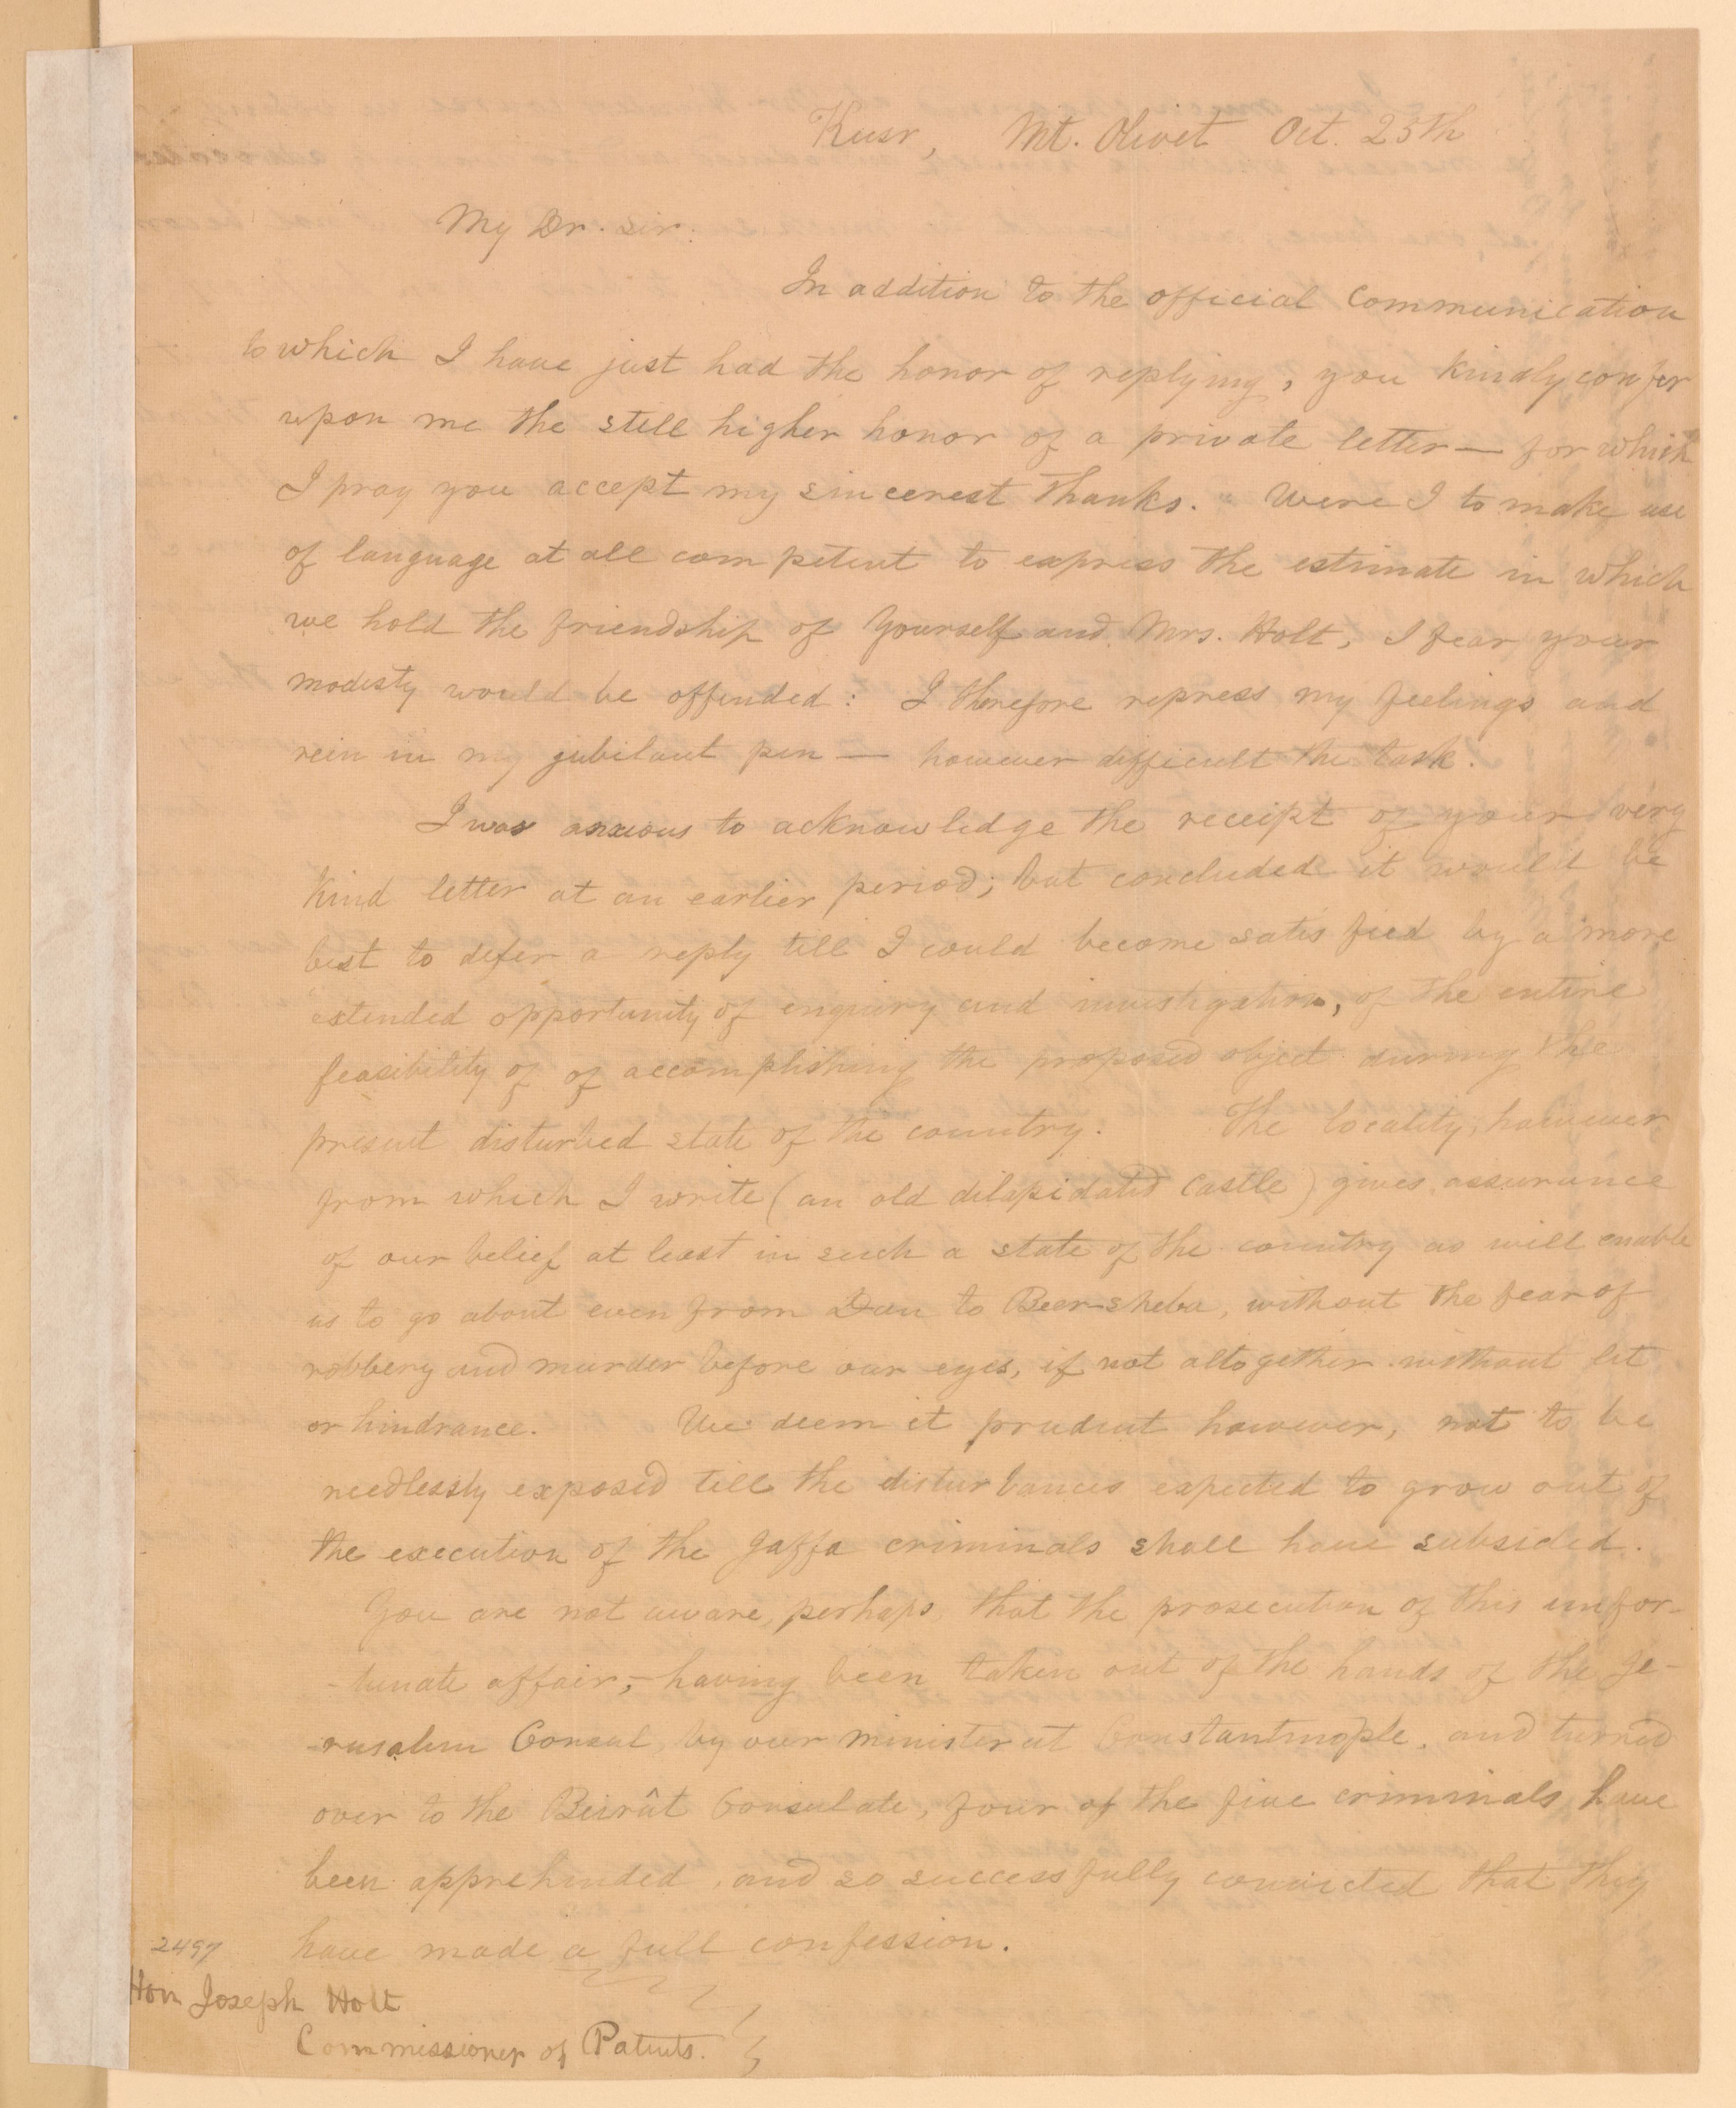 Kusr, Mt. Olivet Oct. 25th
My Dr. Sir:
In addition to the official communication
to which I have just had the honor of replying, you kindly confer
upon me the still higher honor of a private letter — for which
I pray you accept my sincerest thanks. Were I to make use
of language at all competent to express the estimate in which
we hold the friendship of Yourself and Mrs. Holt, I fear your
modesty would be offended: I therefore repress my feelings and
rein in my jubilant pen — however difficult the task.
I was anxious to acknowledge the receipt of your very
kind letter at an earlier period; but concluded it would be
best to defer a reply till I could become satisfied by a more
extended opportunity of enquiry and investigation, of the entire
feasibility of of accomplishing the proposed object during the
present disturbed state of the country. The locality, however
from which I write (an old dilapidated castle) gives assurance
of our belief at least in such a state of the country as will enable
us to go about even from Dan to Beer-sheba, without the fear of
robbery and murder before our eyes, if not altogether without let
or hindrance. We deem it prudent however, not to be
needlessly exposed till the disturbances expected to grow out of
the execution of the Jaffa criminals shall have subsided.
You are not aware, perhaps, that the prosecution of this unfor-
-tunate affair, - having been taken out of the hands of the Je-
-rusalem Consul, by our minister at Constantinople, and turned
over to the Beirût Consulate, four of the five criminals have
been apprehended, and so successfully convicted that they
have made a full confession.
2497
Hon Joseph Holt
Commissioner of Patents.